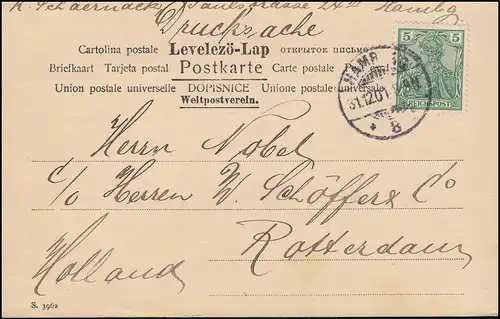 Paulstrasse 24 III Hambg
Drucksache
Cartolina postale Levelezö-Lap открытое письмо
Briefkaart Tarjeta postal Postkarte Carte postale
Union postale universelle DOPISNICE Unione postale universale
Weltpostverein.
5 5
REICHSPOST
HAMBURG
31.12.01
* 8
Herrn Nobel
c/o Herren W. Schöffers & Co
Rotterdam
Holland
S. 3962